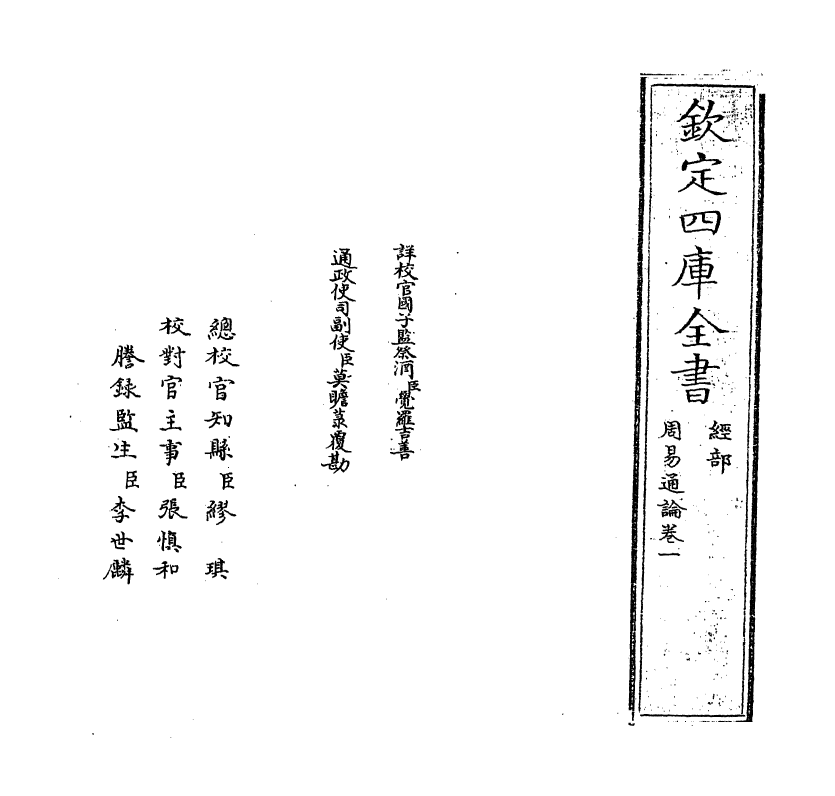 欽定四庫全書
經部
周易通論卷一
詳校官國子監祭酒臣覺羅吉善
通政使司副使臣莫瞻菉覆勘
總校官知縣臣繆琪
校對官主事臣張慎和
謄錄監生臣李世麟